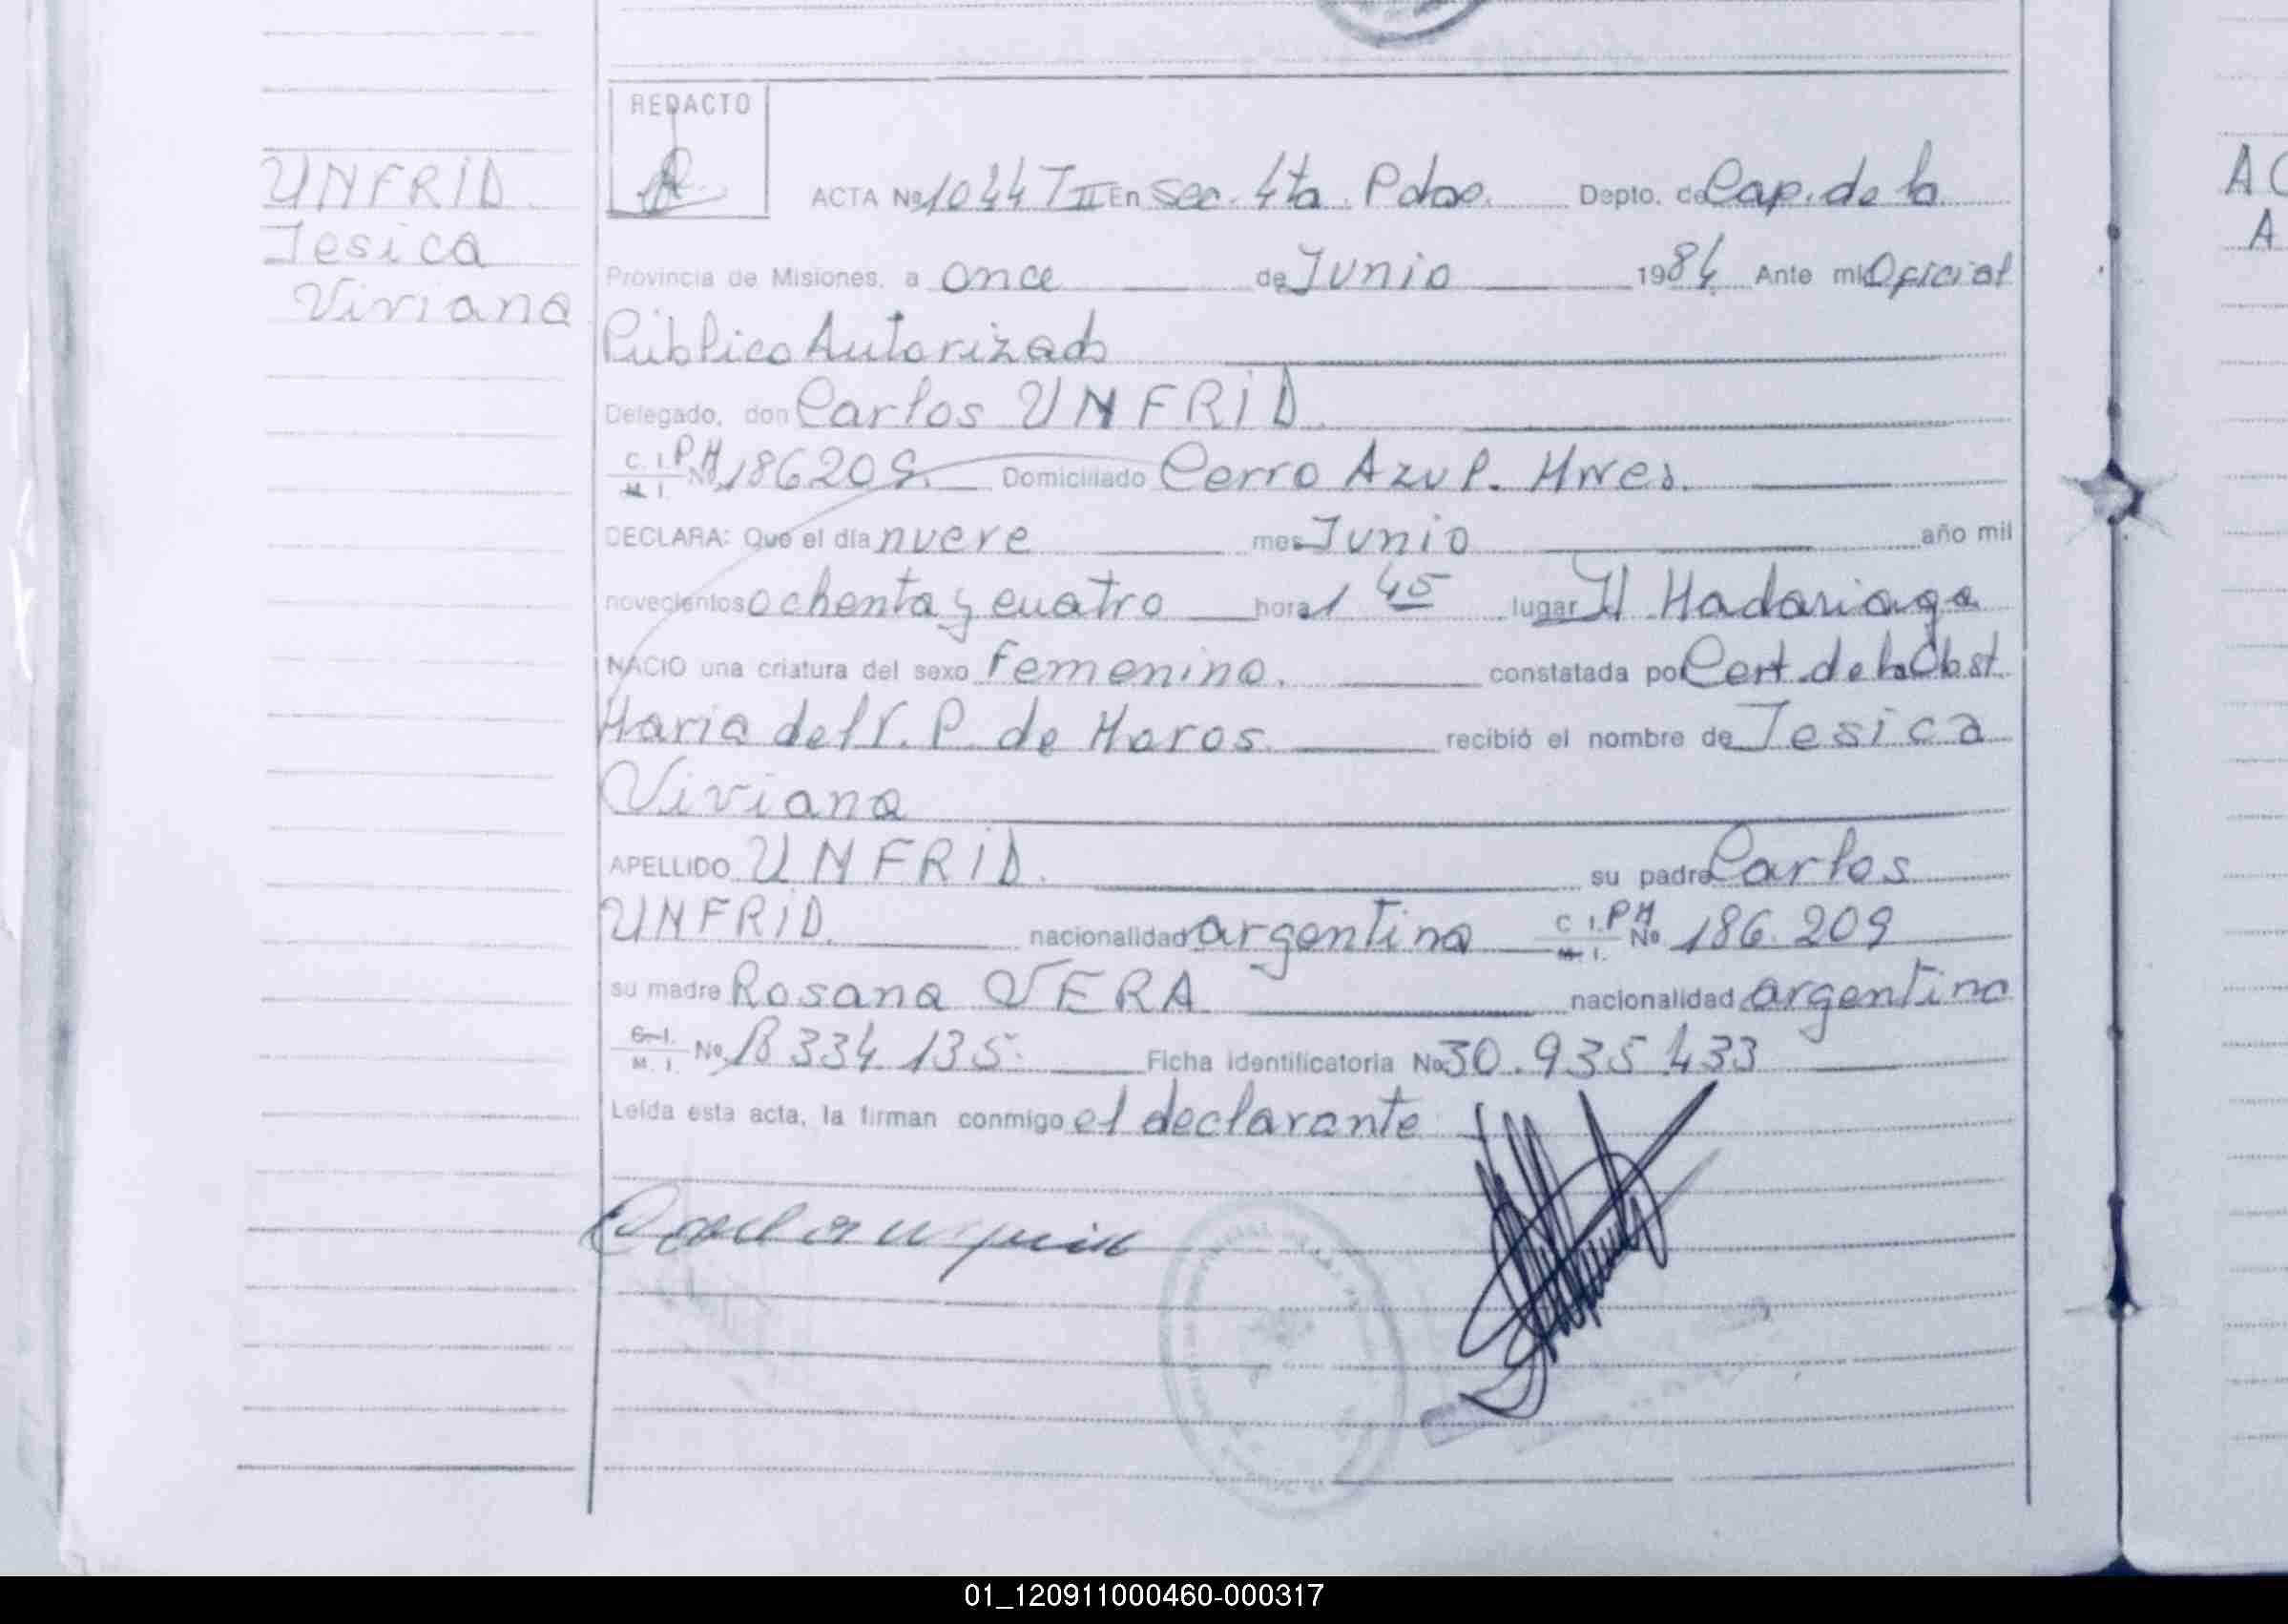 REDACTO
UNFRID
Jesica
Viviana
ACTA Nº 1044 T II En Sec. 4ta. Pdas. Depto. de Cap. de la
Provincia de Misiones, a once de Junio 1984 Ante mi Oficial
Público Autorizado
Delegado, don Carlos UNFRID.
C. I. P.M Nº 186209 Domiciliado Cerro Azul. Mnes.
M. I.
DECLARA: Que el día nueve mes Junio año mil
novecientos ochenta y cuatro hora 1 45 lugar H Madariaga
NACIO una criatura del sexo Femenino. constatada por Cert. de la Obst.
Maria del P. de Maros. recibió el nombre de Jesica
Viviana
APELLIDO UNFRID. su padre Carlos
UNFRID. nacionalidad argentina C. I. P M Nº 186.209
M. I.
su madre Rosana VERA nacionalidad argentina
C. I.
M. I. Nº 18334.135. Ficha identificatoria Nº 30.935.433
Leída esta acta, la firman conmigo el declarante
A
01_120911000460-000317